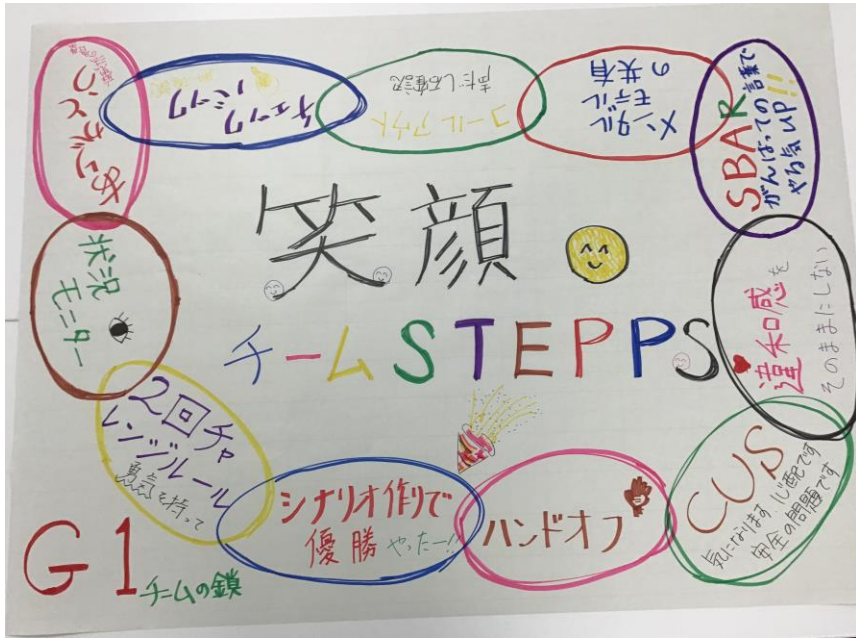 笑顔
チームSTEPPS
ありがとう
チェック
バック
コールアウト
声だし確認
メンタル
モデル
の共有
SBAR
がんばっての言葉で
やる気up!!
違和感を
そのままにしない
CUS
気になります 心配です
安全の問題です
ハンドオフ
シナリオ作りで
優勝 やったー!!
2回チャ
レンジルール
勇気を持って
状況
モニター
G1
チームの鎖